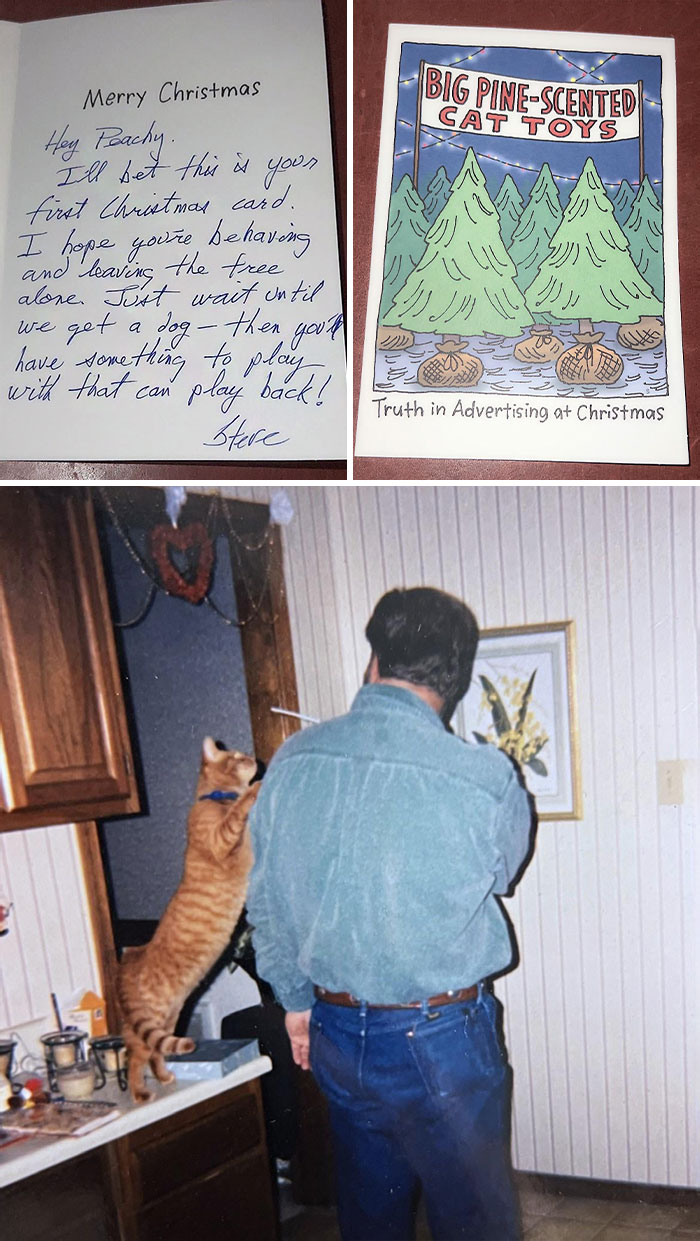 Merry Christmas
Hey Peachy.
I'll bet this is your
first Christmas card.
I hope you're behaving
and leaving the tree
alone. Just wait until
we get a dog – then you'll
have something to play
with that can play back!
Steve
BIG PINE-SCENTED
CAT TOYS
Truth in Advertising at Christmas